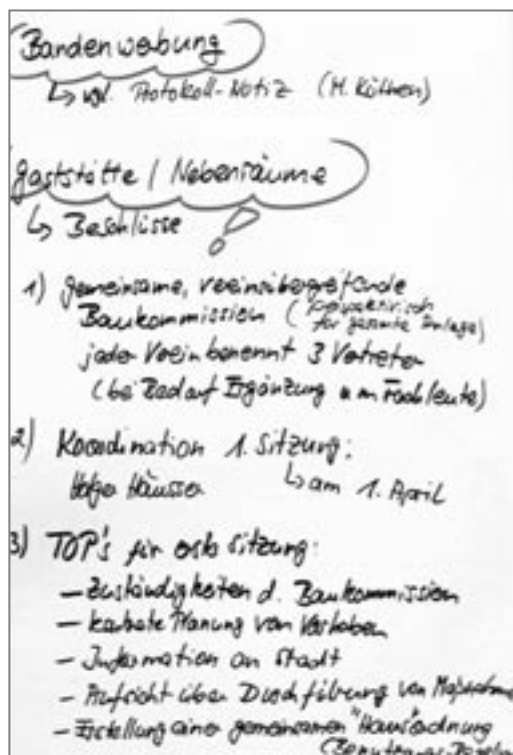 Bandenwerbung
↳ vgl. Protokoll-Notiz (M. Köthen)
Gaststätte / Nebenräume
↳ Beschlüsse
1) gemeinsame, vereinsübergreifende
Baukommission (perspektivisch
für gesamte Anlage)
jeder Verein benennt 3 Vertreter
(bei Bedarf Ergänzung um Fachleute)
2) Koordination 1. Sitzung:
Holger Häusser ↳ am 1. April
3) TOP's für erste Sitzung:
- Zuständigkeiten d. Baukommission
- konkrete Planung von Vorhaben
- Information an Stadt
- Aufsicht über Durchführung von Maßnahmen
- Erstellung einer gemeinsamen "Haus"ordnung